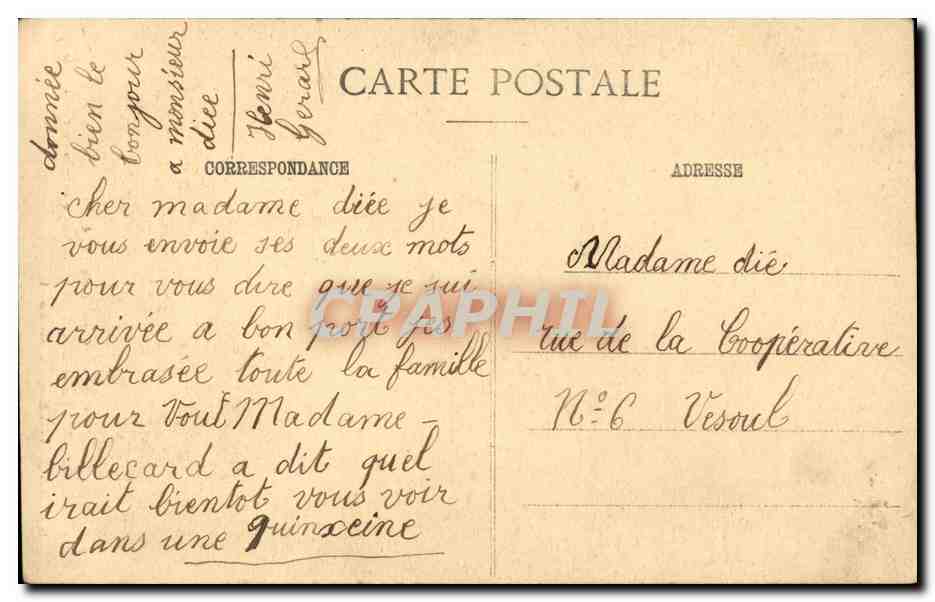 CARTE POSTALE
CORRESPONDANCE
cher madame diée je
vous envoie ses deux mots
pour vous dire que je sui
arrivée a bon port jes
embrasée toute la famille
pour Vous Madame
billecard a dit quel
irait bientot vous voir
dans une quinxeine
donnée
bien le
bonjour
a monsieur
diee
Henri
Gerard
ADRESSE
Madame dié
rue de la Coopérative
No 6 Vesoul
CPAPHIL